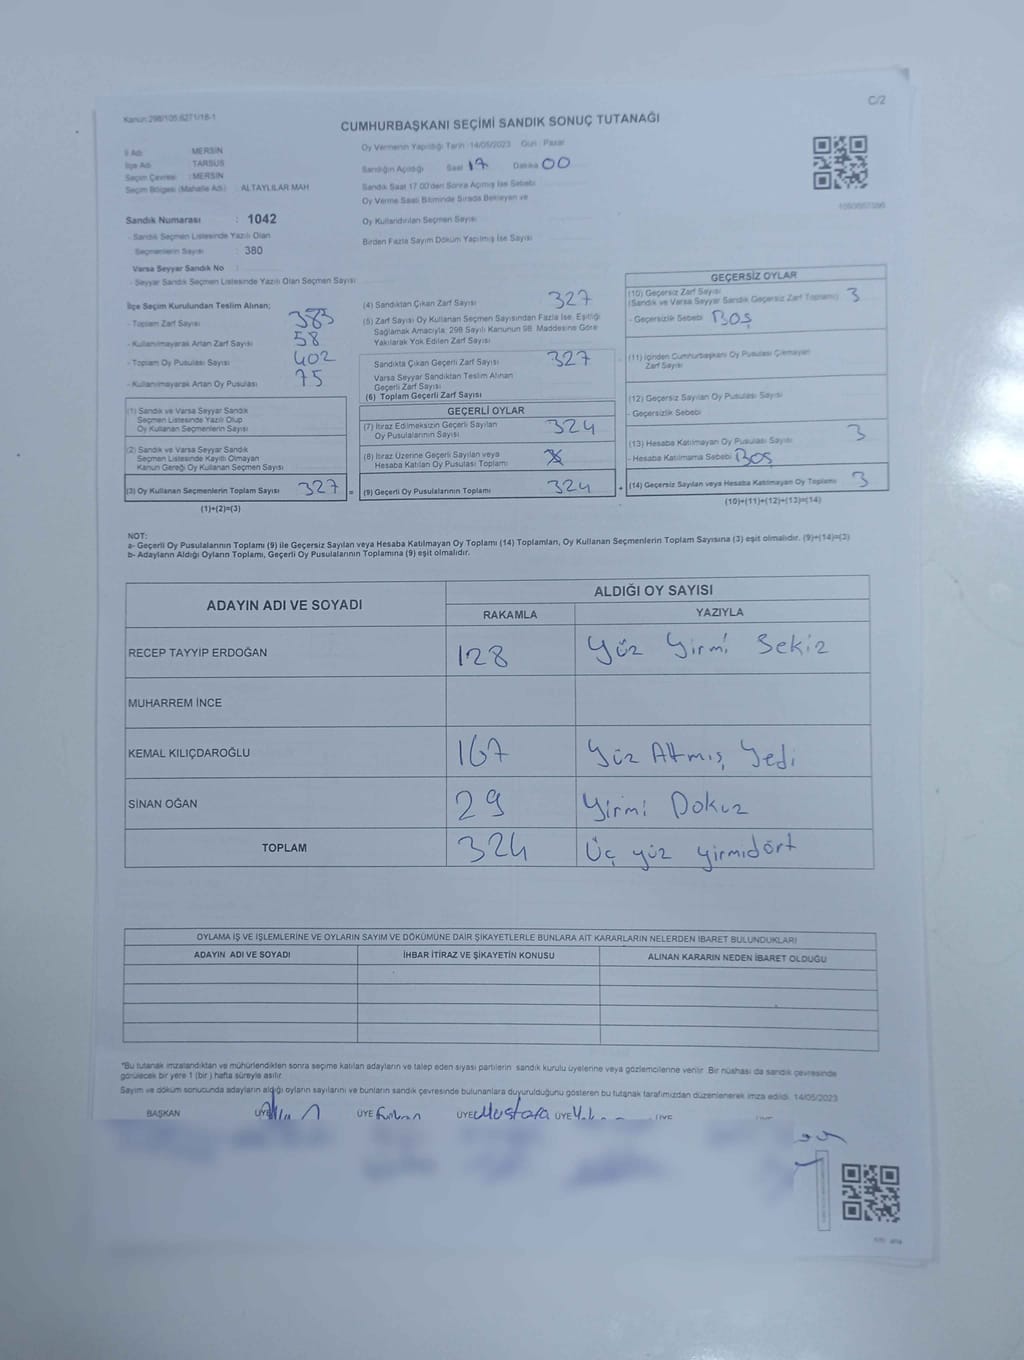 Kanun:298/105;6271/18-1
C/2
CUMHURBAŞKANI SEÇİMİ SANDIK SONUÇ TUTANAĞI
İl Adı : MERSİN
İlçe Adı : TARSUS
Seçim Çevresi : MERSİN
Seçim Bölgesi (Mahalle Adı) : ALTAYLILAR MAH
Sandık Numarası : 1042
- Sandık Seçmen Listesinde Yazılı Olan
Seçmenlerin Sayısı : 380
Varsa Seyyar Sandık No :
- Seyyar Sandık Seçmen Listesinde Yazılı Olan Seçmen Sayısı :
Oy Vermenin Yapıldığı Tarih :14/05/2023 Gün : Pazar
Sandığın Açıldığı Saat 17 Dakika 00
Sandık Saat 17.00'den Sonra Açılmış İse Sebebi
Oy Verme Saati Bitiminde Sırada Bekleyen ve
Oy Kullandırılan Seçmen Sayısı
Birden Fazla Sayım Döküm Yapılmış İse Sayısı
İlçe Seçim Kurulundan Teslim Alınan;
- Toplam Zarf Sayısı 385
- Kullanılmayarak Artan Zarf Sayısı 58
- Toplam Oy Pusulası Sayısı 402
- Kullanılmayarak Artan Oy Pusulası 75
(1) Sandık ve Varsa Seyyar Sandık
Seçmen Listesinde Yazılı Olup
Oy Kullanan Seçmenlerin Sayısı
(2) Sandık ve Varsa Seyyar Sandık
Seçmen Listesinde Kayıtlı Olmayan
Kanun Gereği Oy Kullanan Seçmen Sayısı
(3) Oy Kullanan Seçmenlerin Toplam Sayısı 327 =
(1)+(2)=(3)
(4) Sandıktan Çıkan Zarf Sayısı 327
(5) Zarf Sayısı Oy Kullanan Seçmen Sayısından Fazla İse, Eşitliği
Sağlamak Amacıyla; 298 Sayılı Kanunun 98. Maddesine Göre
Yakılarak Yok Edilen Zarf Sayısı
Sandıkta Çıkan Geçerli Zarf Sayısı 327
Varsa Seyyar Sandıktan Teslim Alınan
Geçerli Zarf Sayısı
(6) Toplam Geçerli Zarf Sayısı
GEÇERLİ OYLAR
(7) İtiraz Edilmeksizin Geçerli Sayılan
Oy Pusulalarının Sayısı 324
(8) İtiraz Üzerine Geçerli Sayılan veya
Hesaba Katılan Oy Pusulası Toplamı
(9) Geçerli Oy Pusulalarının Toplamı 324 +
GEÇERSİZ OYLAR
(10) Geçersiz Zarf Sayısı
(Sandık ve Varsa Seyyar Sandık Geçersiz Zarf Toplamı) 3
- Geçersizlik Sebebi BOŞ
(11) İçinden Cumhurbaşkanı Oy Pusulası Çıkmayan
Zarf Sayısı
(12) Geçersiz Sayılan Oy Pusulası Sayısı
- Geçersizlik Sebebi
(13) Hesaba Katılmayan Oy Pusulası Sayısı 3
- Hesaba Katılmama Sebebi BOŞ
(14) Geçersiz Sayılan veya Hesaba Katılmayan Oy Toplamı 3
(10)+(11)+(12)+(13)=(14)
NOT:
a- Geçerli Oy Pusulalarının Toplamı (9) ile Geçersiz Sayılan veya Hesaba Katılmayan Oy Toplamı (14) Toplamları, Oy Kullanan Seçmenlerin Toplam Sayısına (3) eşit olmalıdır. (9)+(14)=(3)
b- Adayların Aldığı Oyların Toplamı, Geçerli Oy Pusulalarının Toplamına (9) eşit olmalıdır.
ADAYIN ADI VE SOYADI
ALDIĞI OY SAYISI
RAKAMLA YAZIYLA
RECEP TAYYIP ERDOĞAN 128 Yüz Yirmi Sekiz
MUHARREM İNCE
KEMAL KILIÇDAROĞLU 167 Yüz Altmış Yedi
SİNAN OĞAN 29 Yirmi Dokuz
TOPLAM 324 Üç yüz yirmidört
OYLAMA İŞ VE İŞLEMLERİNE VE OYLARIN SAYIM VE DÖKÜMÜNE DAİR ŞİKAYETLERLE BUNLARA AİT KARARLARIN NELERDEN İBARET BULUNDUKLARI
ADAYIN ADI VE SOYADI İHBAR İTİRAZ VE ŞİKAYETİN KONUSU ALINAN KARARIN NEDEN İBARET OLDUĞU
*Bu tutanak imzalandıktan ve mühürlendikten sonra seçime katılan adayların ve talep eden siyasi partilerin sandık kurulu üyelerine veya gözlemcilerine verilir. Bir nüshası da sandık çevresinde
görülecek bir yere 1 (bir) hafta süreyle asılır.
Sayım ve döküm sonucunda adayların aldığı oyların sayılarını ve bunların sandık çevresinde bulunanlara duyurulduğunu gösteren bu tutanak tarafımızdan düzenlenerek imza edildi. 14/05/2023
BAŞKAN ÜYE ÜYE Furkan ÜYE Mustafa ÜYE